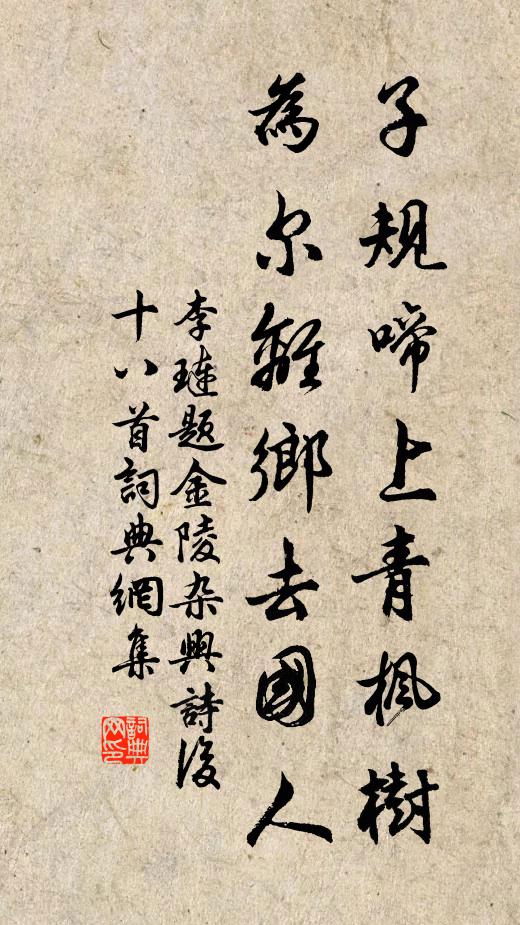 子規啼上青楓樹
為尔離鄉去國人
李璉題金陵杂興詩後
十八首詞典網集
詞典
网印